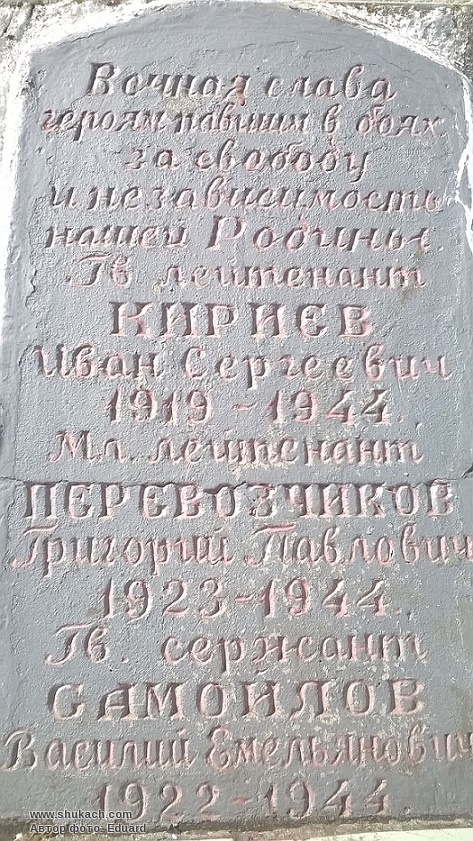 Вечная слава
героям павшим в боях
за свободу
и независимость
нашей Родины.
Гв лейтенант
КИРИЕВ
Иван Сергеевич
1919 - 1944.
Мл. лейтенант
ПЕРЕВОЗЧИКОВ
Григорий Павлович
1923-1944.
Гв. сержант
САМОЙЛОВ
Василий Емельянович
1922-1944.
www.shukach.com
Автор фото: Eduard